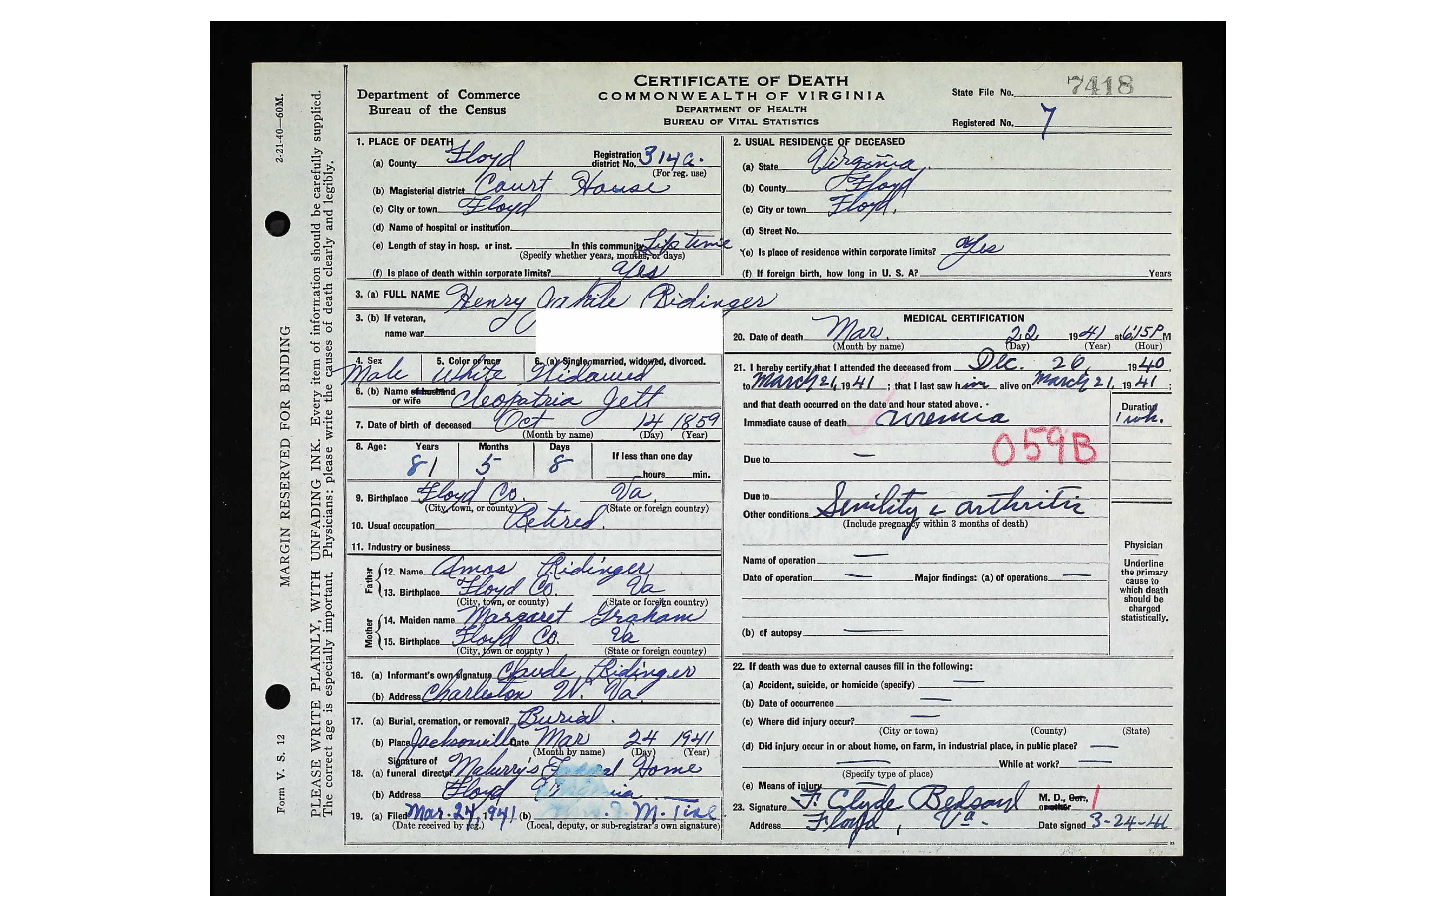 CERTIFICATE OF DEATH
COMMONWEALTH OF VIRGINIA
DEPARTMENT OF HEALTH
BUREAU OF VITAL STATISTICS
Department of Commerce
Bureau of the Census
State File No. 7418
Registered No. 7
2-21-40—60M.
MARGIN RESERVED FOR BINDING
Form V. S. 12
PLEASE WRITE PLAINLY, WITH UNFADING INK. Every item of information should be carefully supplied.
The correct age is especially important. Physicians: please write the causes of death clearly and legibly.
1. PLACE OF DEATH
(a) County Floyd Registration district No. 314a.
(For reg. use)
(b) Magisterial district Court House
(c) City or town Floyd
(d) Name of hospital or institution
(e) Length of stay in hosp. or inst. In this community Life time
(Specify whether years, months, or days)
(f) Is place of death within corporate limits? Yes
2. USUAL RESIDENCE OF DECEASED
(a) State Virginia
(b) County Floyd
(c) City or town Floyd.
(d) Street No.
(e) Is place of residence within corporate limits? Yes
(f) If foreign birth, how long in U. S. A? Years
3. (a) FULL NAME Henry White Ridinger
3. (b) If veteran,
name war
4. Sex Male
5. Color or race White
6. (a) Single, married, widowed, divorced. Widowed
6. (b) Name of husband or wife Cleopatria Jett
7. Date of birth of deceased Oct 14 1859
(Month by name) (Day) (Year)
8. Age: Years 81 Months 5 Days 8 If less than one day
hours min.
9. Birthplace Floyd Co. Va.
(City, town, or county) (State or foreign country)
10. Usual occupation Retired.
11. Industry or business
Father
12. Name Amos Ridinger
13. Birthplace Floyd Co. Va
(City, town, or county) (State or foreign country)
Mother
14. Maiden name Margaret Graham
15. Birthplace Floyd Co. Va
(City, town or county) (State or foreign country)
16. (a) Informant's own signature Claude Ridinger
(b) Address Charleston W. Va.
17. (a) Burial, cremation, or removal? Burial.
(b) Place Jacksonville Date Mar 24 1941
(Month by name) (Day) (Year)
Signature of
18. (a) funeral director Funeral Home
(b) Address Floyd Virginia
19. (a) Filed Mar. 24, 1941 (b) M.
(Date received by reg.) (Local, deputy, or sub-registrar's own signature)
MEDICAL CERTIFICATION
20. Date of death Mar. 22 1941 at 6:15 P M
(Month by name) (Day) (Year) (Hour)
21. I hereby certify that I attended the deceased from Dec. 26, 1940
to March 21, 1941 ; that I last saw him alive on March 21, 1941 ;
and that death occurred on the date and hour stated above.
Duration
Immediate cause of death uremia 1 wk.
059B
Due to —
Due to
Other conditions Senility & arthritis
(Include pregnancy within 3 months of death)
Name of operation —
Date of operation — Major findings: (a) of operations —
(b) of autopsy —
Physician
Underline the primary cause to which death should be charged statistically.
22. If death was due to external causes fill in the following:
(a) Accident, suicide, or homicide (specify) —
(b) Date of occurrence —
(c) Where did injury occur? —
(City or town) (County) (State)
(d) Did injury occur in or about home, on farm, in industrial place, in public place? —
— While at work? —
(Specify type of place)
(e) Means of injury
23. Signature F. Clyde Bedsaul M. D., Cor., or other 1
Address Floyd, Va. Date signed 3-24-41